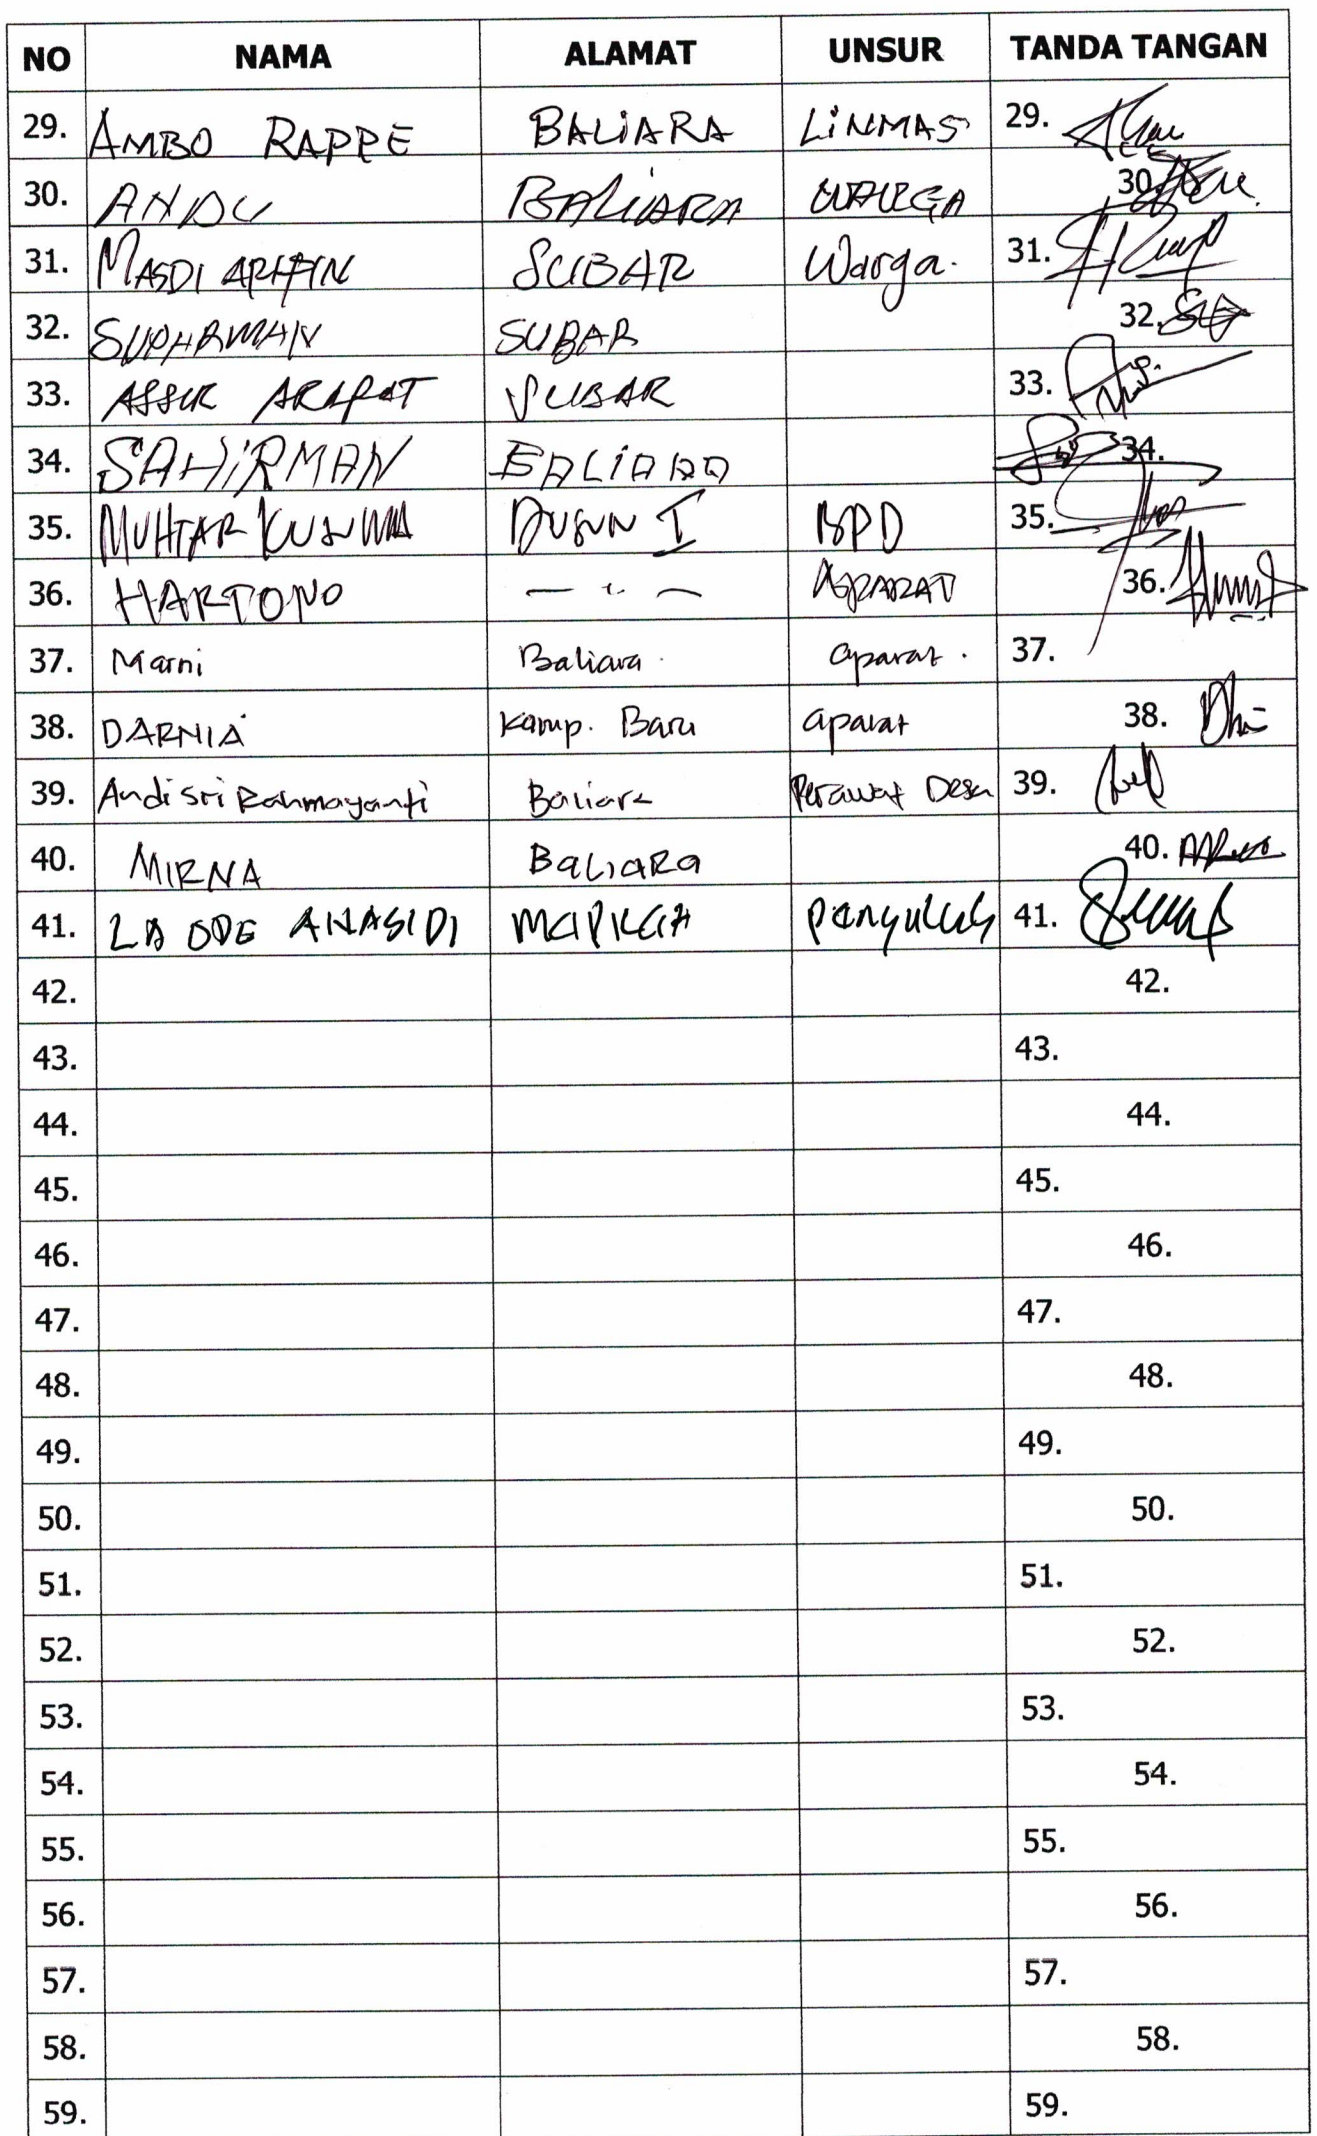 NO NAMA ALAMAT UNSUR TANDA TANGAN
29. AMBO RAPPE BALIARA LINMAS 29.
30. ANDU BALIARA WARGA 30.
31. MASDI ARIFIN SUBAR Warga. 31.
32. SUPARMAN SUBAR 32.
33. ARAFAT SUBAR 33.
34. SAHIRMAN BALIARA 34.
35. MUHTAR DUSUN I BPD 35.
36. HARTONO — " — APARAT 36.
37. Marni Baliara. aparat. 37.
38. DARNIA Kamp. Baru aparat 38.
39. Andi Sri Rahmayanti Baliara Perawat Desa 39.
40. MIRNA BALIARA 40.
41. LA ODE ANASIDI 41.
42. 42.
43. 43.
44. 44.
45. 45.
46. 46.
47. 47.
48. 48.
49. 49.
50. 50.
51. 51.
52. 52.
53. 53.
54. 54.
55. 55.
56. 56.
57. 57.
58. 58.
59. 59.